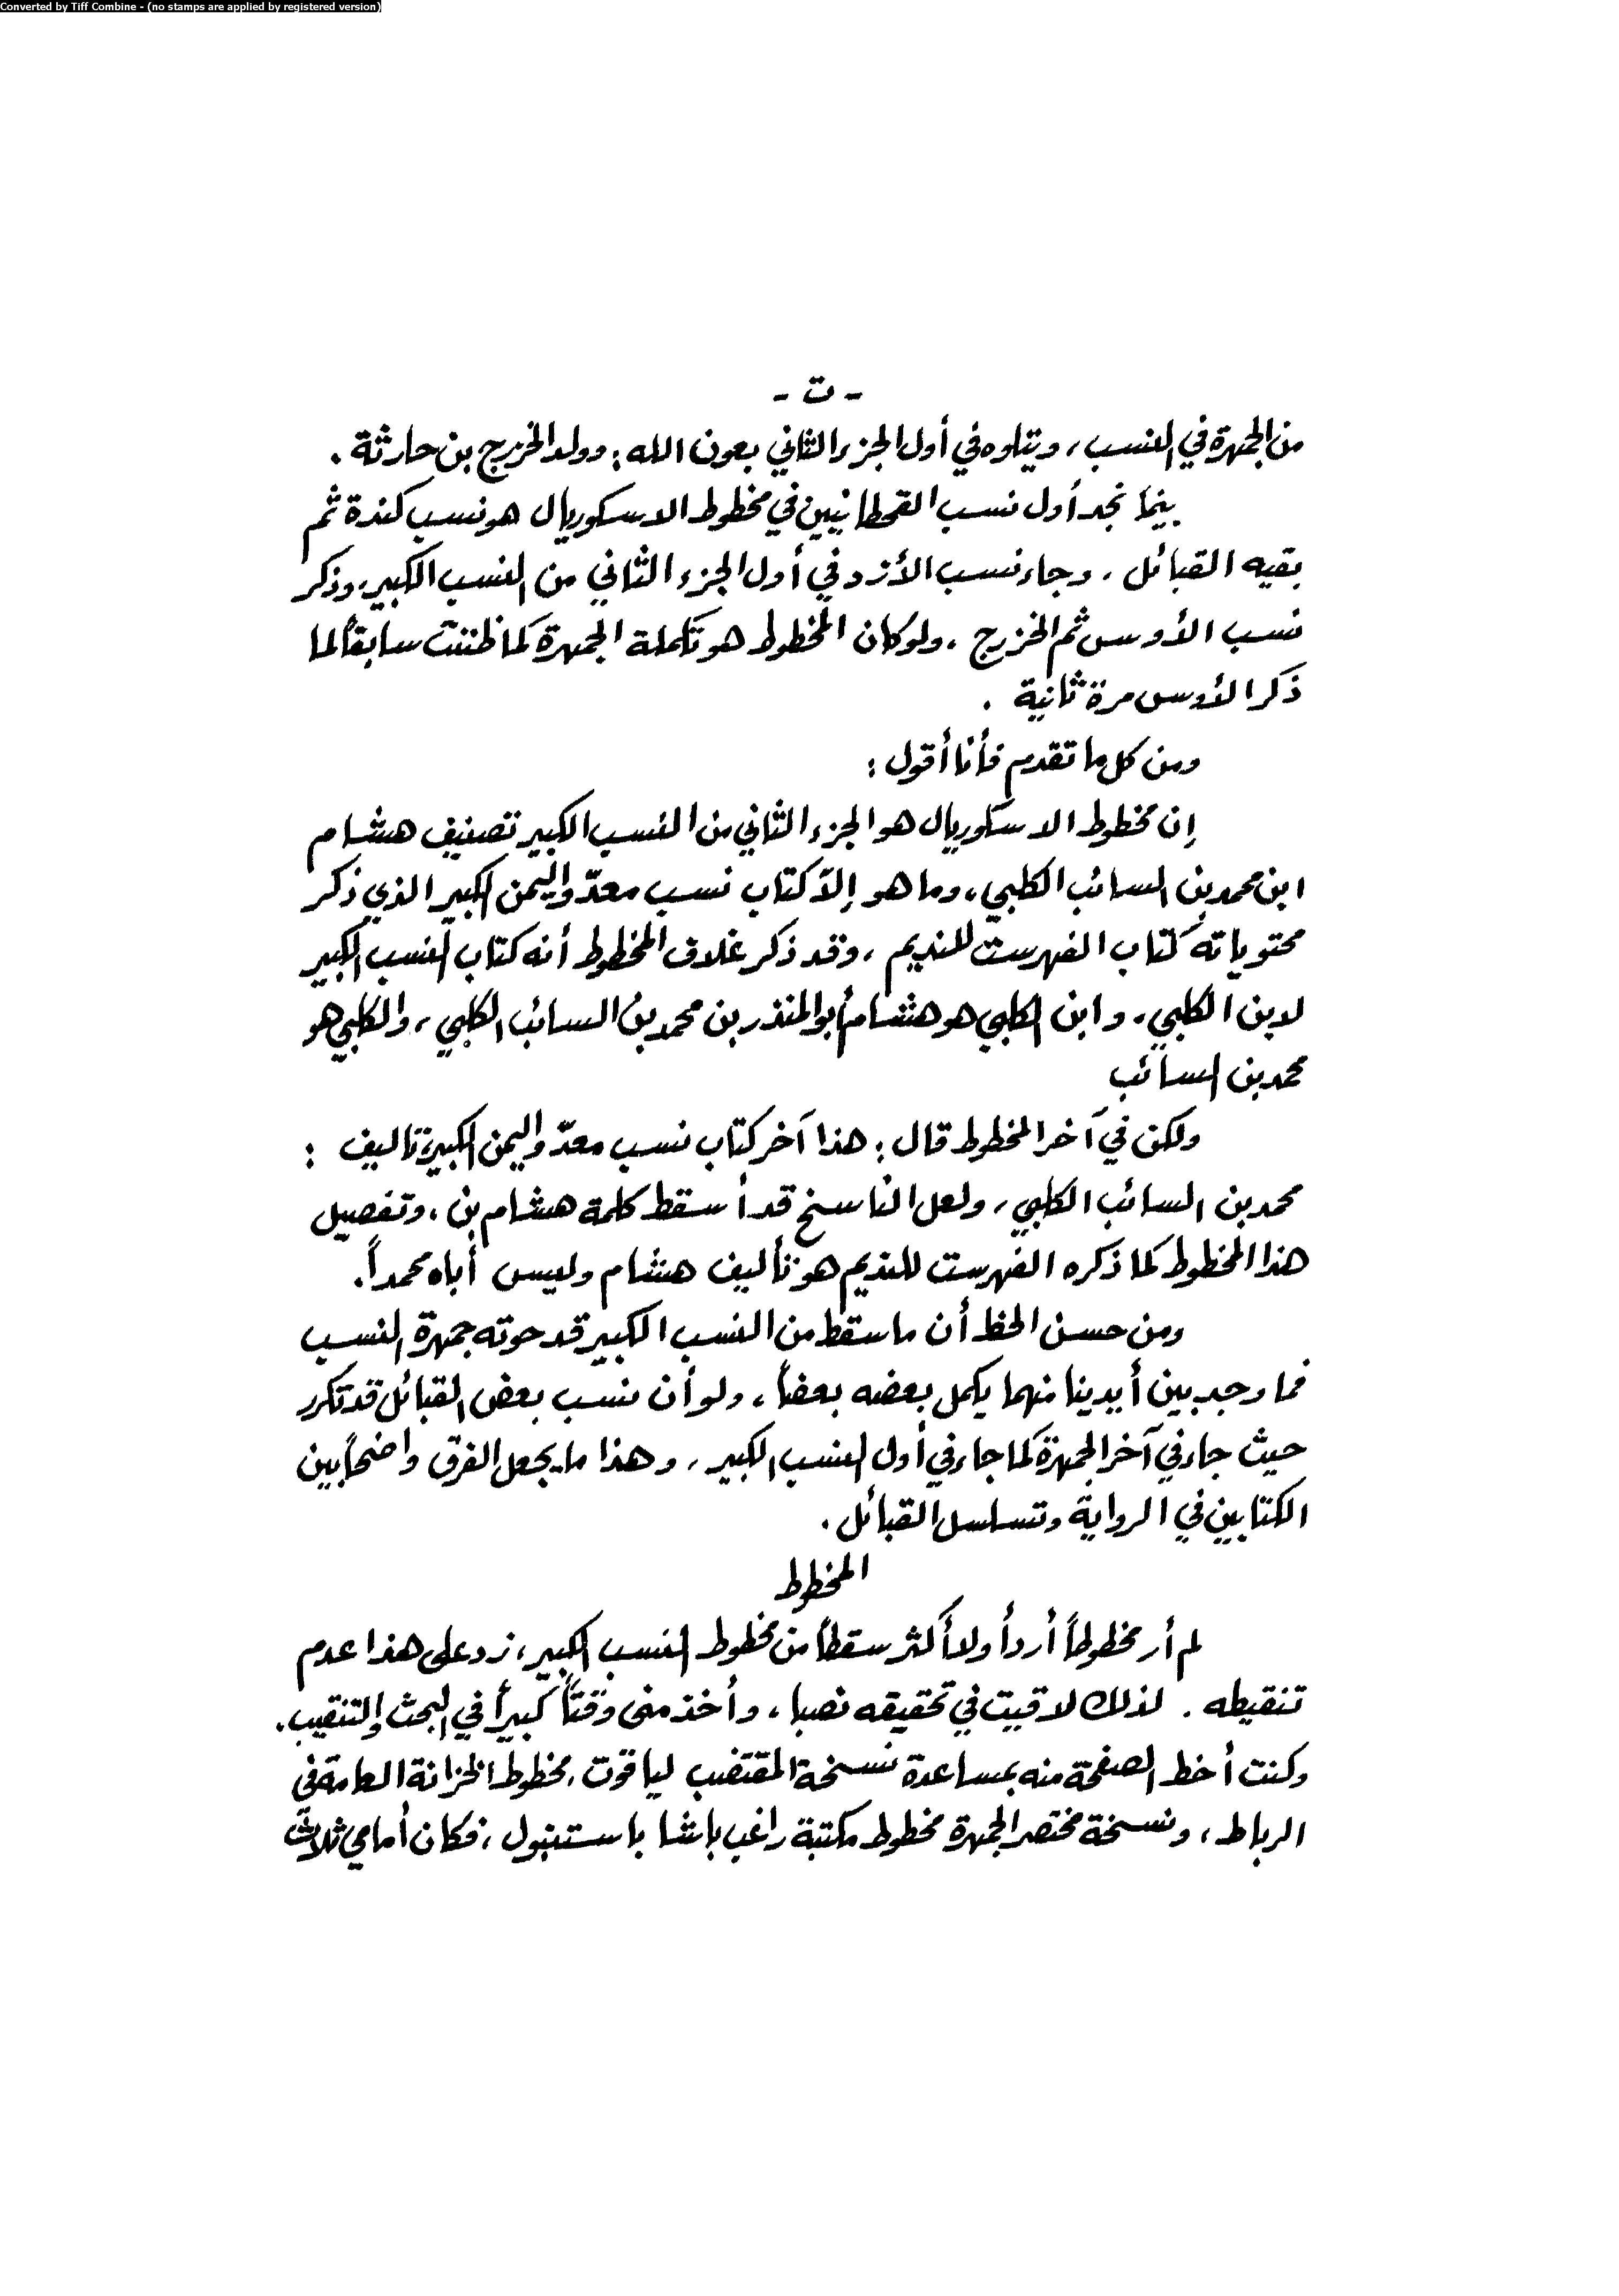 Converted by Tiff Combine - (no stamps are applied by registered version)
- ت -
من الجمهرة في النسب، ويتلوه في أول الجزء الثاني بعون الله: وولد الخزرج بن حارثة.
بينما نجد أول نسب القحطانيين في مخطوط الاسكوريال هو نسب كندة ثم
بقيه القبائل، وجاء نسب الأزد في أول الجزء الثاني من النسب الكبير، وذكر
نسب الأوس ثم الخزرج، ولو كان المخطوط هو تكملة الجمهرة كما ظننت سابقاً لما
ذكر الأوس مرة ثانية.
ومن كل ما تقدم فأنا أقول:
إن مخطوط الاسكوريال هو الجزء الثاني من النسب الكبير تصنيف هشام
ابن محمد بن السائب الكلبي، وما هو إلاّ كتاب نسب معدّ واليمن الكبير الذي ذكر
محتوياته كتاب الفهرست للنديم، وقد ذكر غلاف المخطوط أنه كتاب النسب الكبير
لابن الكلبي، وابن الكلبي هو هشام أبو المنذر بن محمد بن السائب الكلبي، والكلبي هو
محمد بن السائب
ولكن في آخر المخطوط قال: هذا آخر كتاب نسب معدّ واليمن الكبير تاليف:
محمد بن السائب الكلبي، ولعل الناسخ قد أسقط كلمة هشام بن، وتفصيل
هذا المخطوط كما ذكره الفهرست للنديم هو تأليف هشام وليس أباه محمداً.
ومن حسن الحظ أن ما سقط من النسب الكبير قد حوته جمهرة النسب
فما وجد بين أيدينا منهما يكمل بعضه بعضاً، ولو أن نسب بعض القبائل قد تكرر
حيث جاء في آخر الجمهرة كما جاء في أول النسب الكبير، وهذا ما يجعل الفرق واضحاً بين
الكتابين في الرواية وتسلسل القبائل.
المخطوط
لم أر مخطوطاً أردأ ولا أكثر سقطاً من مخطوط النسب الكبير، زد على هذا عدم
تنقيطه. لذلك لاقيت في تحقيقه نصبا، وأخذ منى وقتاً كبيراً في البحث والتنقيب.
وكنت أخط الصفحة منه بمساعدة نسخة المقتضب لياقوت، مخطوط الخزانة العامة في
الرباط، ونسخة مختصر الجمهرة مخطوط مكتبة راغب باشا باستنبول، فكان أمامي ثلاث